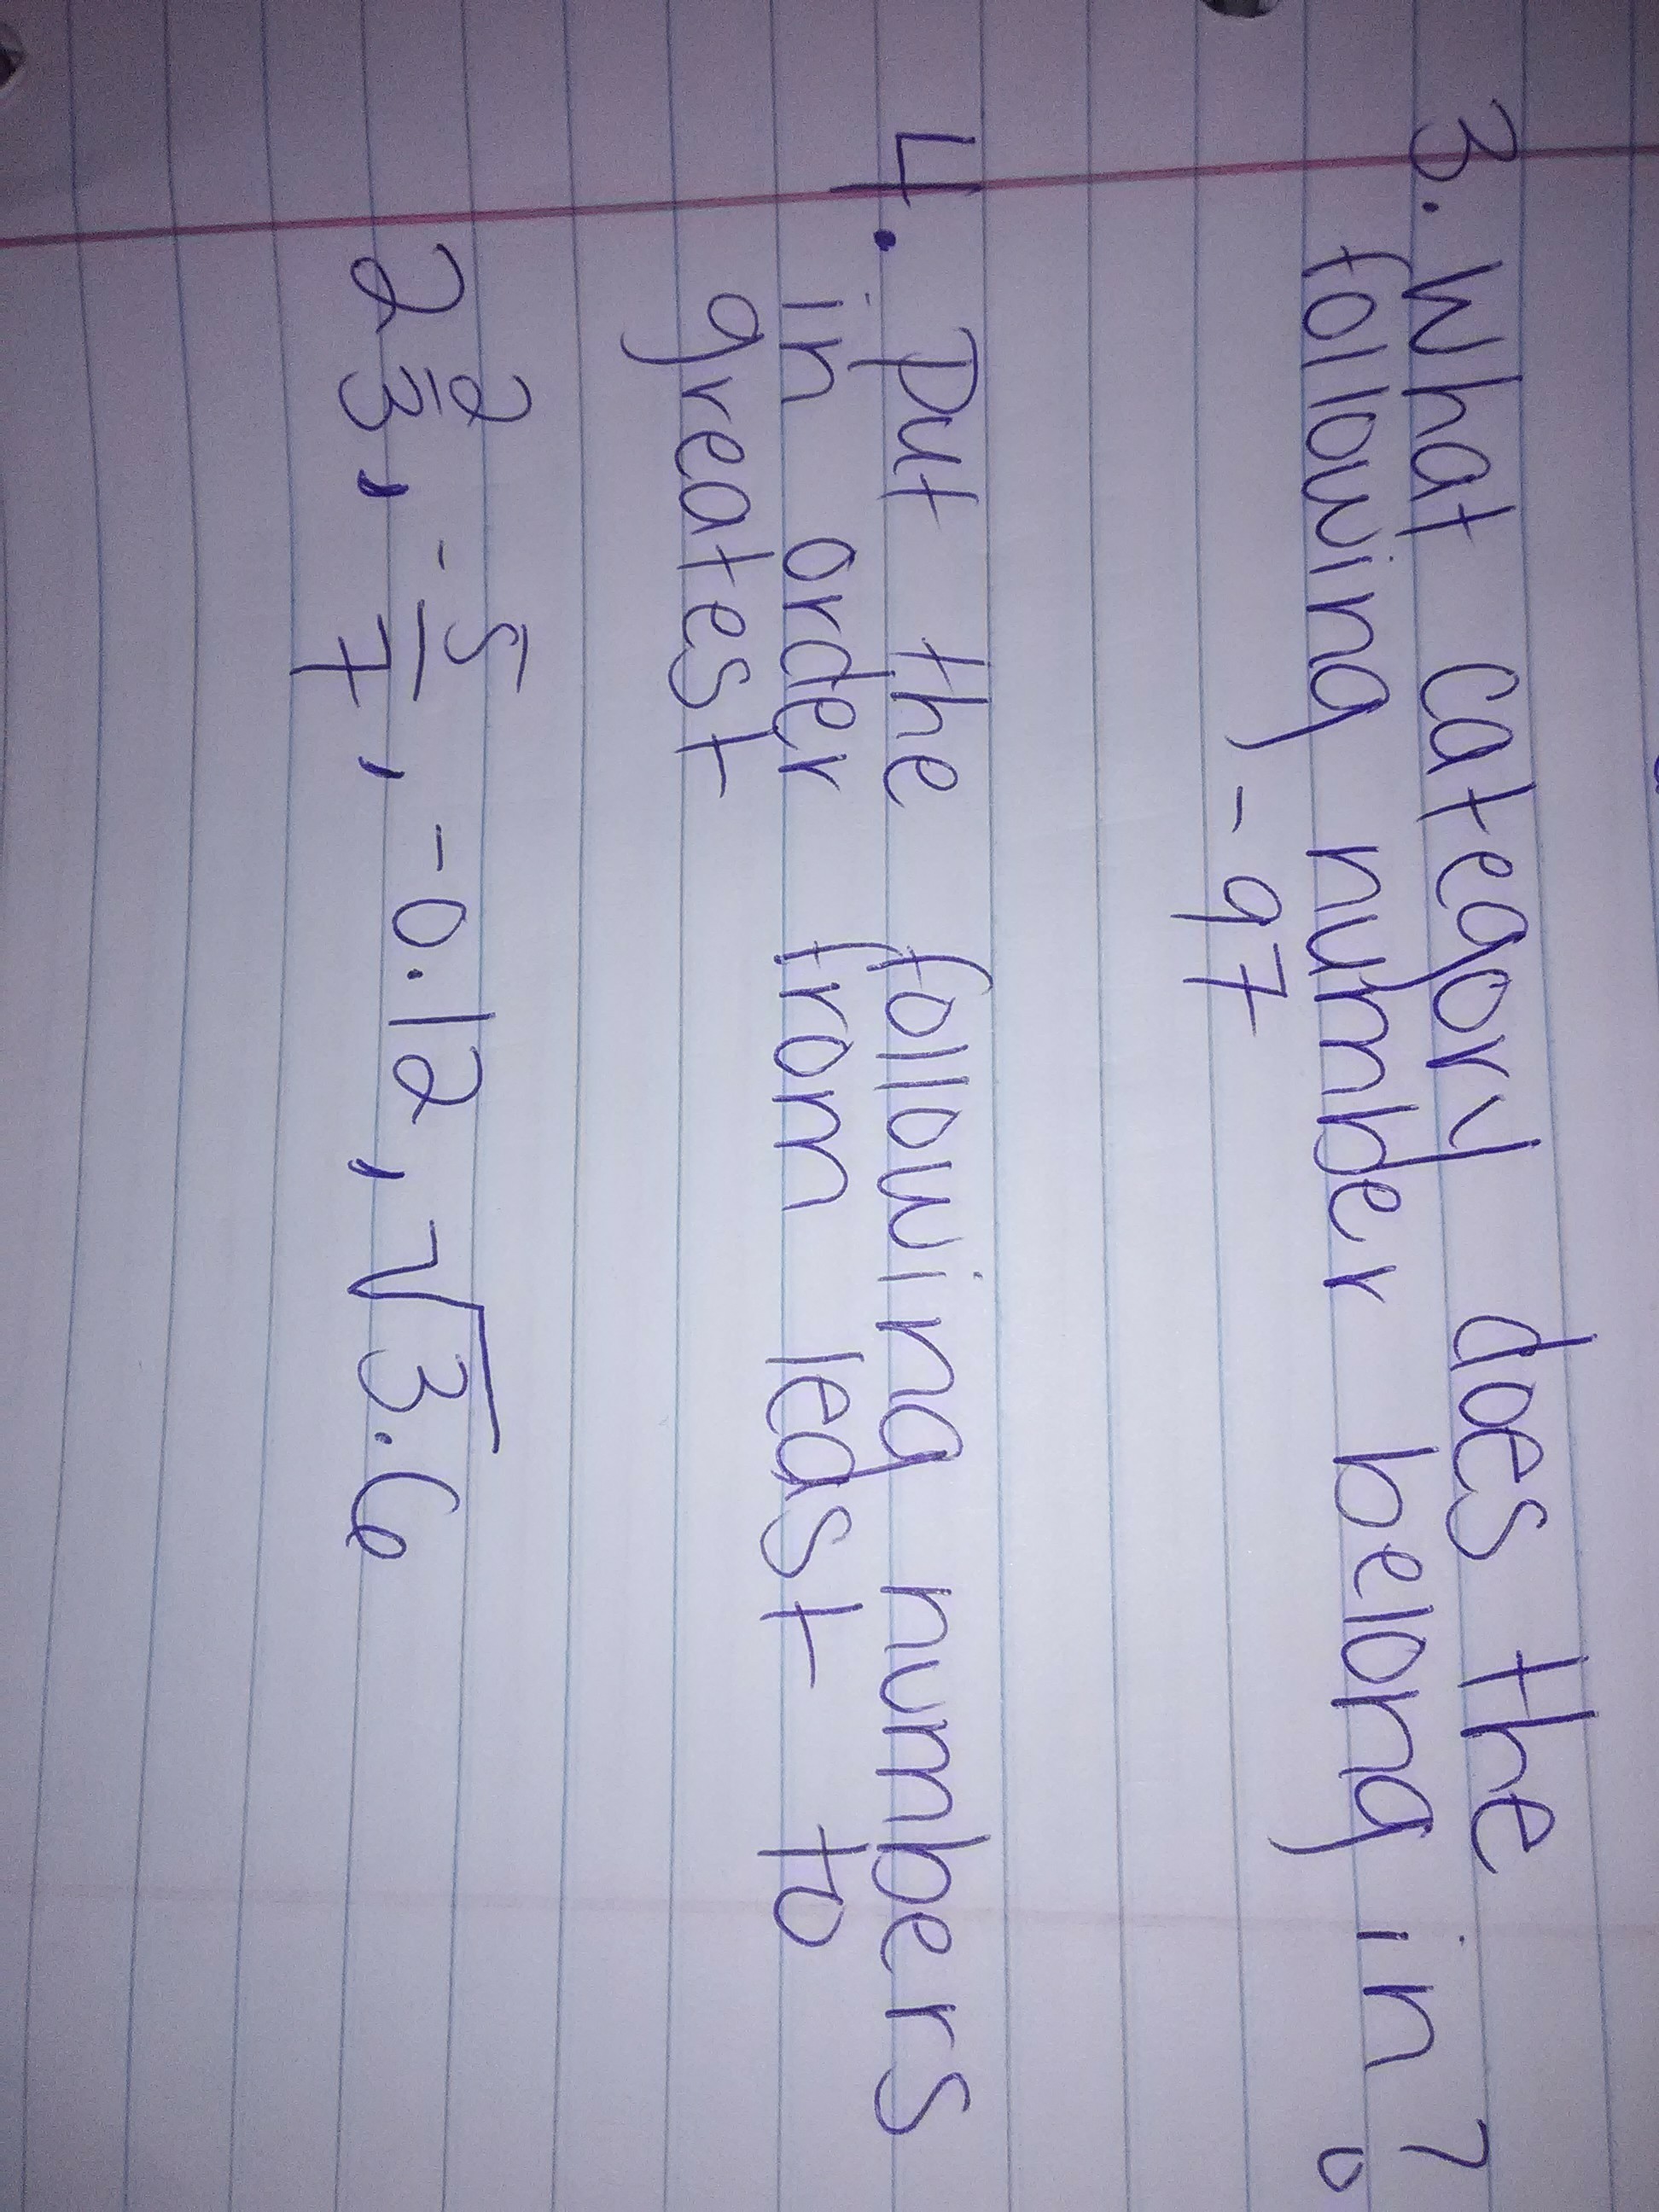 3. What category does the
following number belong in?
-97
4. Put the following numbers
in order from least to
greatest
2 2/3, -5/7, -0.12, √3.6